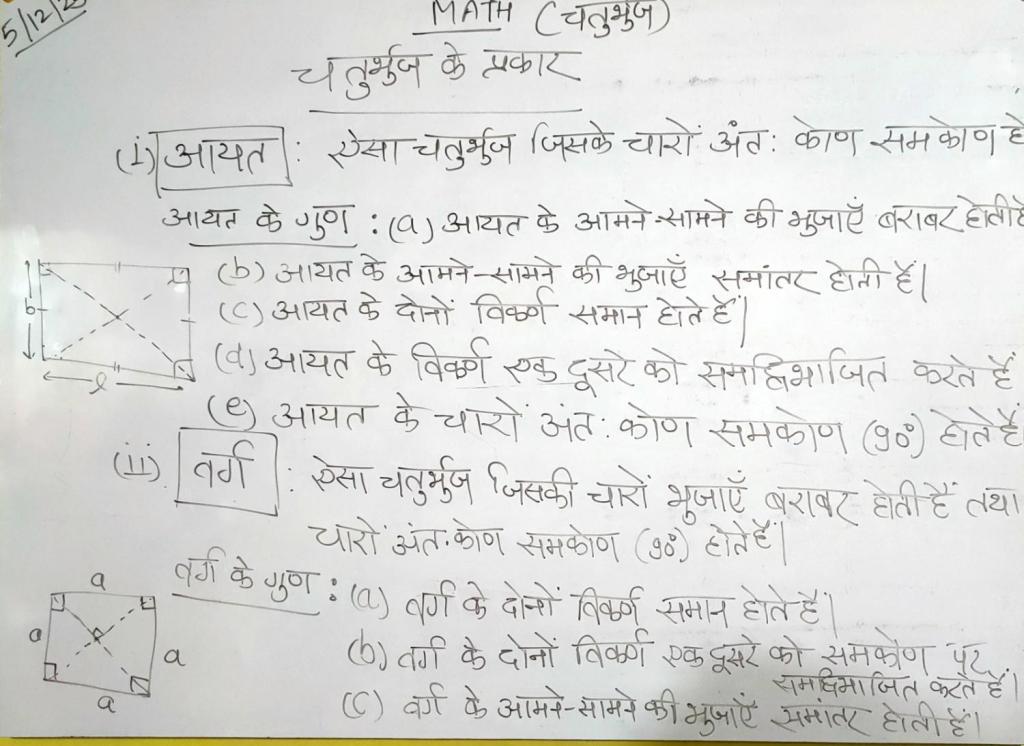 5/12/2
MATH (चतुर्भुज)
चतुर्भुज के प्रकार
(i) आयत : ऐसा चतुर्भुज जिसके चारों अंत: कोण समकोण हो
आयत के गुण : (a) आयत के आमने-सामने की भुजाएँ बराबर होती हैं
(b) आयत के आमने-सामने की भुजाएँ समांतर होती हैं।
b
(c) आयत के दोनों विकर्ण समान होते हैं।
(d) आयत के विकर्ण एक दूसरे को समद्विभाजित करते हैं
l
(e) आयत के चारों अंत: कोण समकोण (90°) होते हैं
(ii) वर्ग : ऐसा चतुर्भुज जिसकी चारों भुजाएँ बराबर होती हैं तथा
चारों अंत:कोण समकोण (90°) होते हैं।
a
वर्ग के गुण : (a) वर्ग के दोनों विकर्ण समान होते हैं।
a
a
(b) वर्ग के दोनों विकर्ण एक दूसरे को समकोण पर
समद्विभाजित करते हैं।
a
(c) वर्ग के आमने-सामने की भुजाएँ समांतर होती हैं।